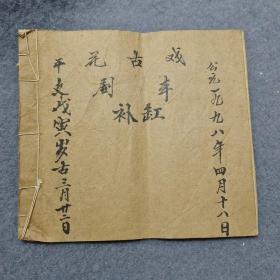 公元一九九八年四月十八日
花古戏
剧本
补缸
干支戊寅岁古三月廿二日